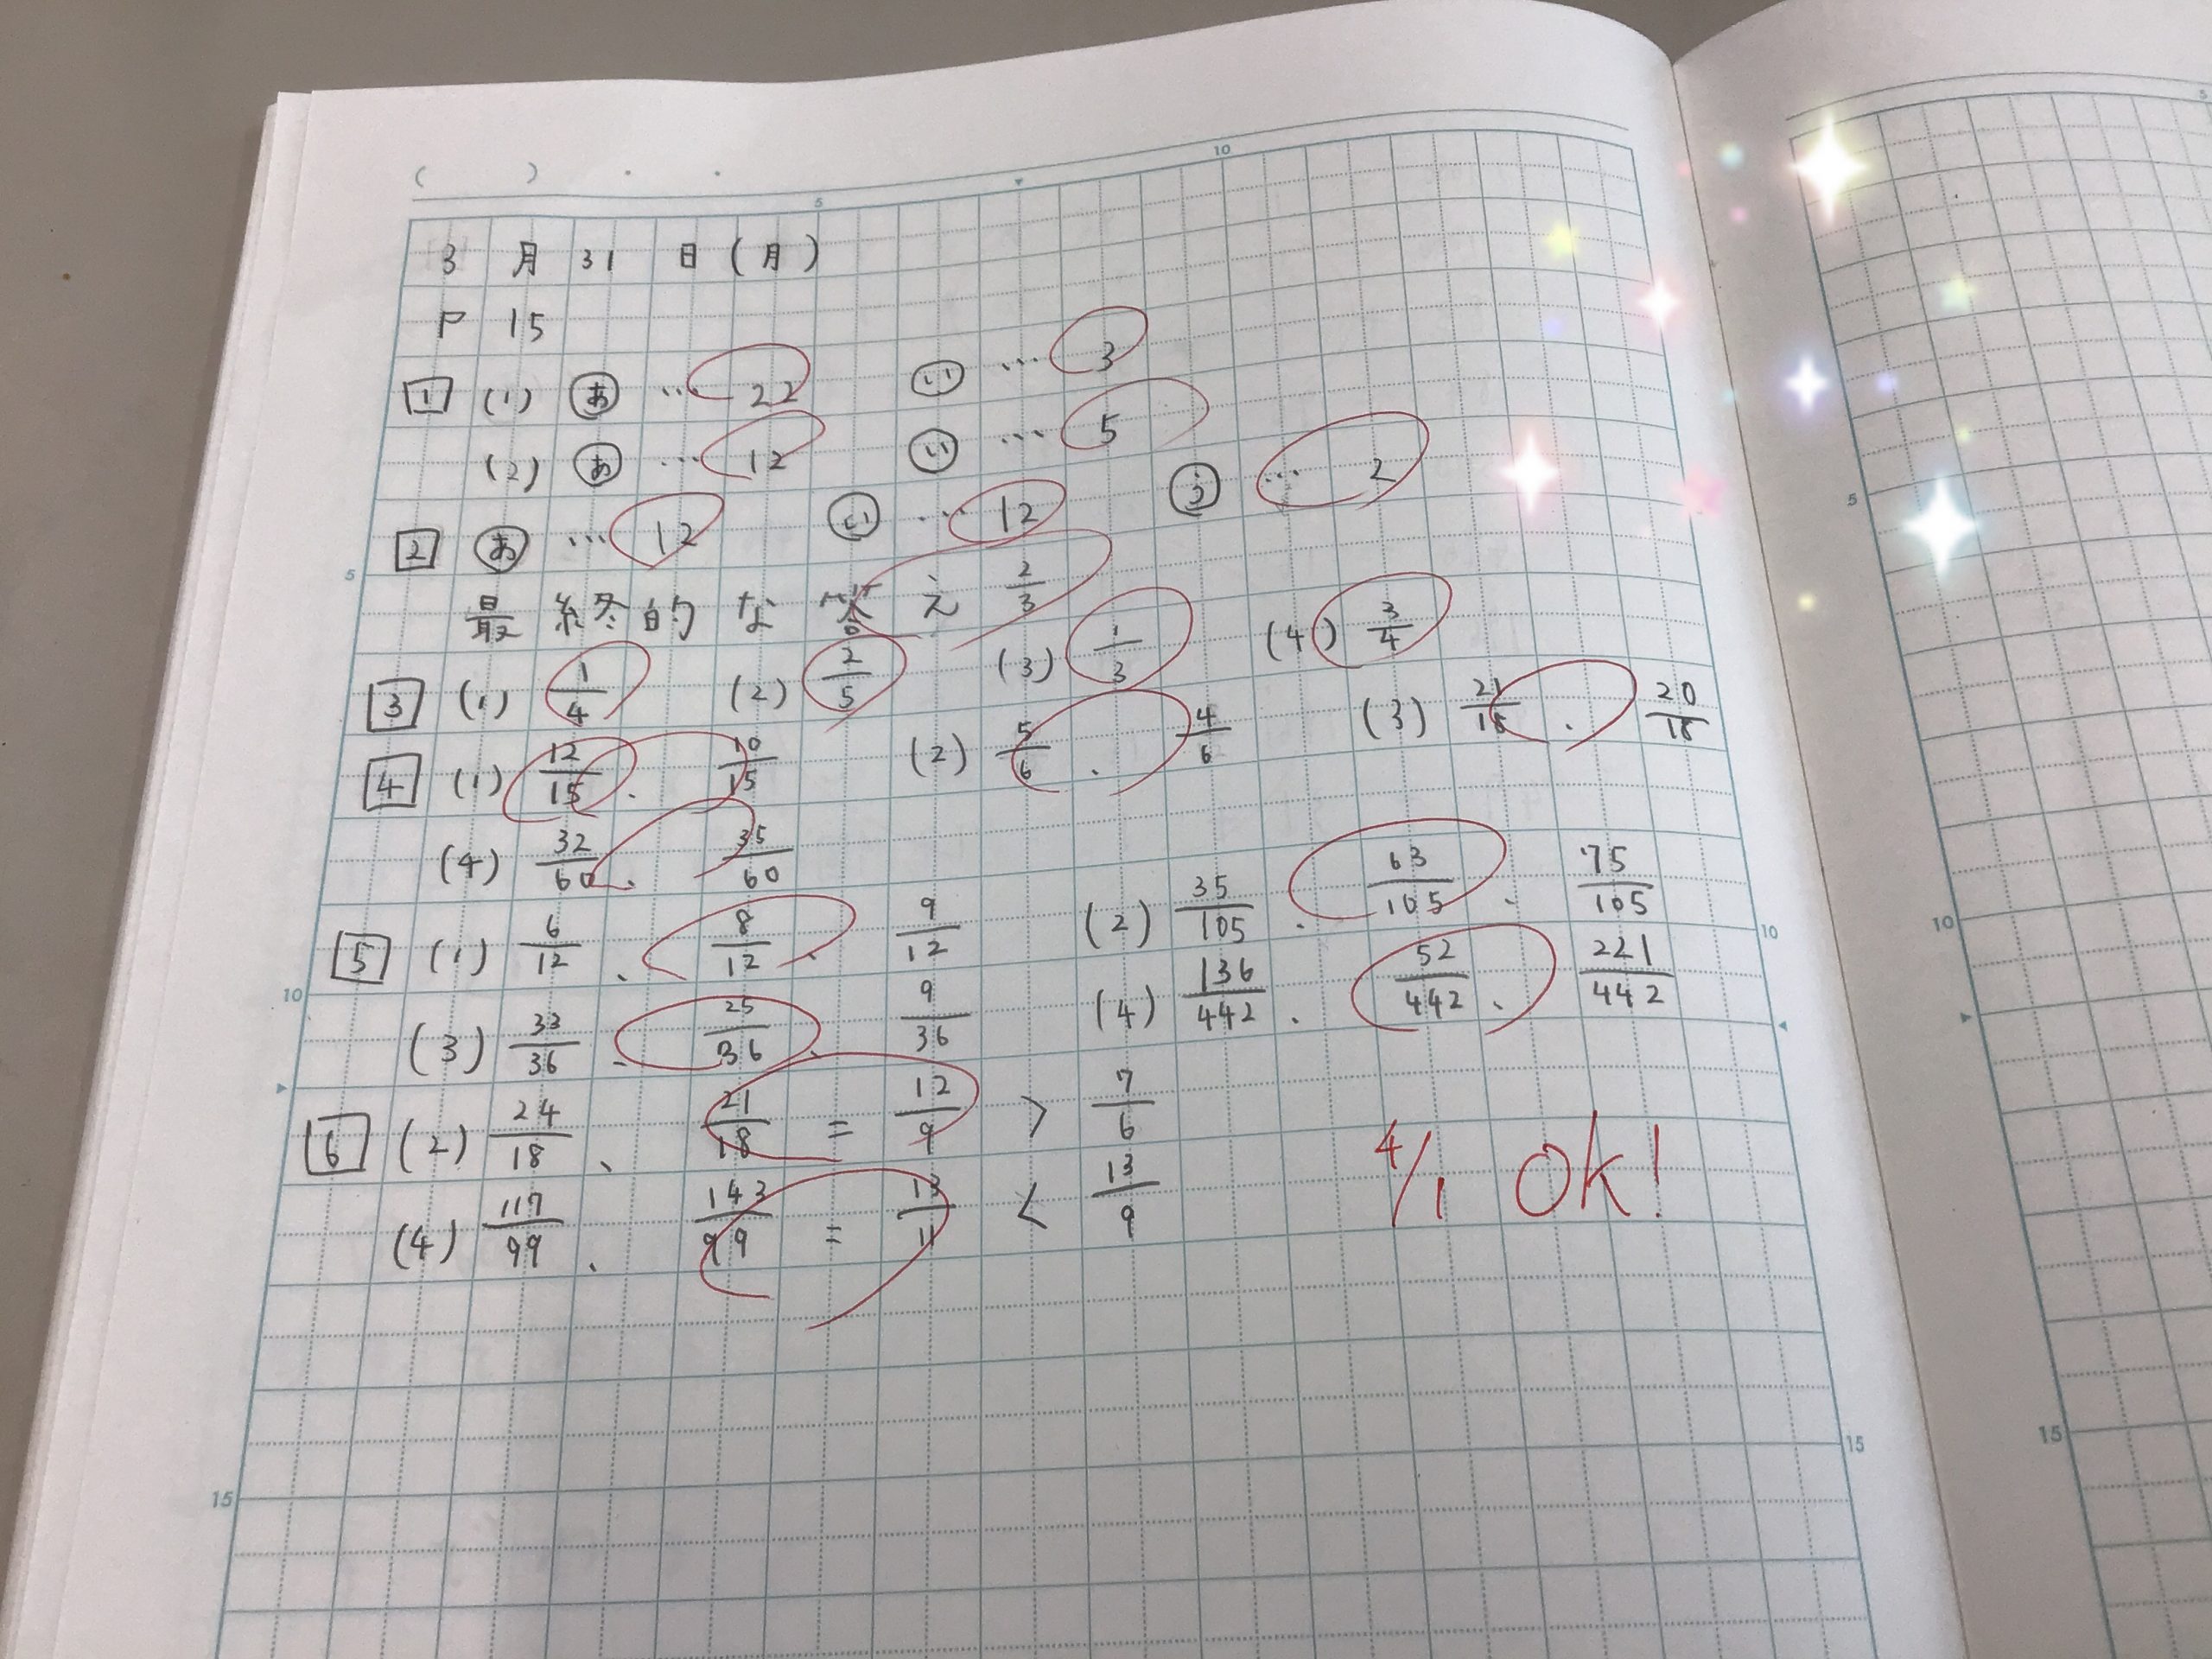 ( ) ・ ・
5 10
3月31日(月)
P 15
1 (1) あ … 22 い … 3
(2) あ … 12 い … 5
2 あ … 12 い … 12 う … 2
最終的な答え 2/3
3 (1) 1/4 (2) 2/5 (3) 1/3 (4) 3/4
4 (1) 12/15 、 10/15 (2) 5/6 、 4/6 (3) 21/18 、 20/18
(4) 32/60 、 35/60
5 (1) 6/12 、 8/12 、 9/12 (2) 35/105 、 63/105 、 75/105
(3) 33/36 、 25/36 、 9/36 (4) 136/442 、 52/442 、 221/442
6 (2) 24/18 、 21/18 = 12/9 > 7/6
(4) 117/99 、 143/99 = 13/11 < 13/9
4/1 Ok!
5
10
15
10
15
5
5
10
15